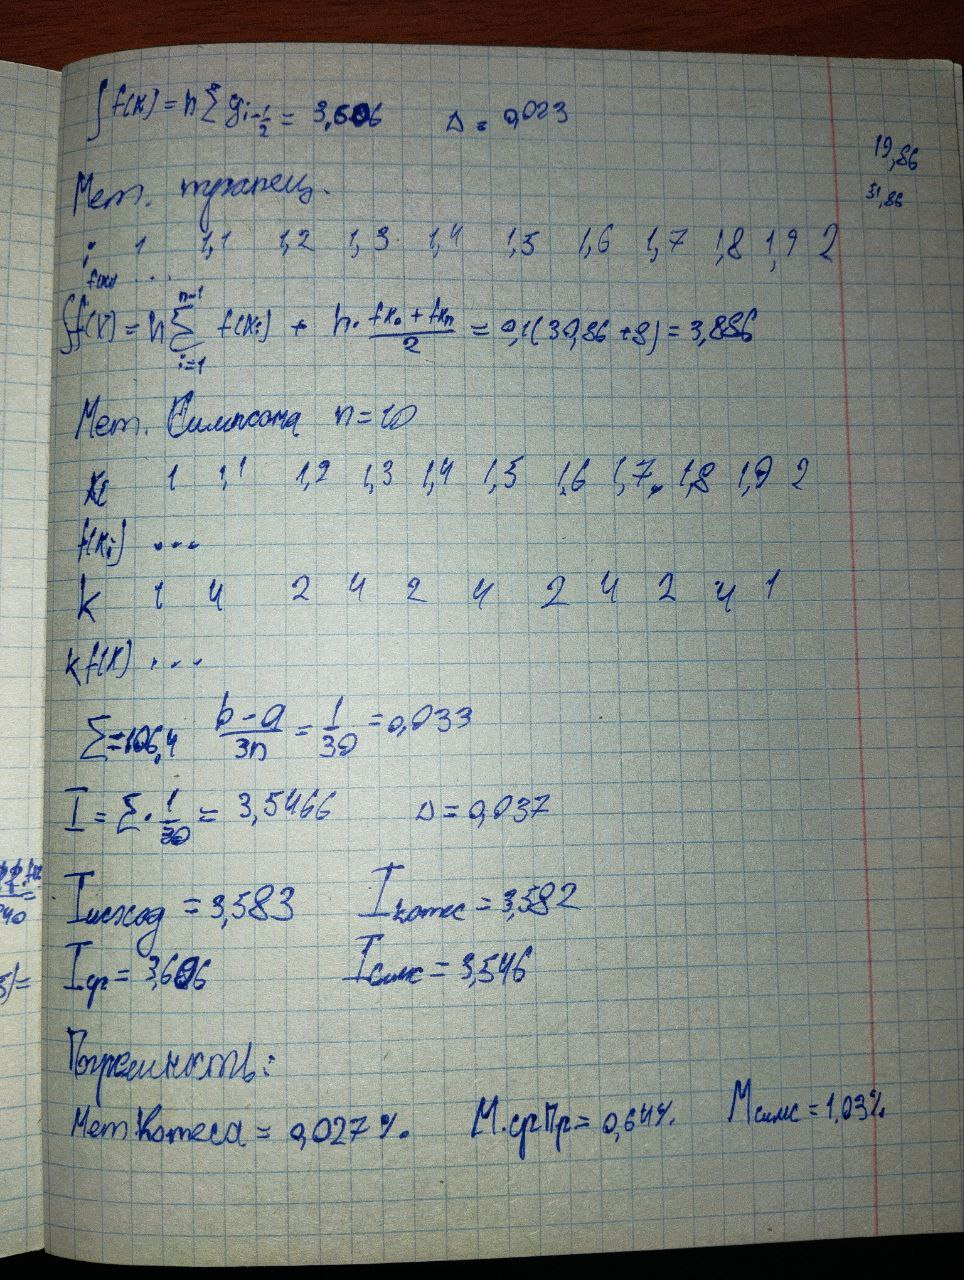 ∫ f(x) = h Σ y_{i-1/2} = 3,606   Δ = 0,023
19,86
31,86
Мет. трапец.
i   1   1,1   1,2   1,3   1,4   1,5   1,6   1,7   1,8   1,9   2
f(xi)   ...
∫ f(x) = h Σ_{i=1}^{n-1} f(xi) + h · (fx₀ + fxₙ)/2 = 0,1(30,86 + 8) = 3,886
Мет. Симпсона   n = 10
xi   1   1,1   1,2   1,3   1,4   1,5   1,6   1,7   1,8   1,9   2
f(xi)   ...
k   1   4   2   4   2   4   2   4   2   4   1
k f(x)   ...
Σ = 106,4   (b - a)/3n = 1/30 = 0,033
I = Σ · 1/30 = 3,5466   Δ = 0,037
I исход = 3,583   I котес = 3,582
I ср = 3,606   I симс = 3,546
Погрешность:
Мет. Котеса = 0,027%.   М. ср Пр = 0,644%.   М симс = 1,03%